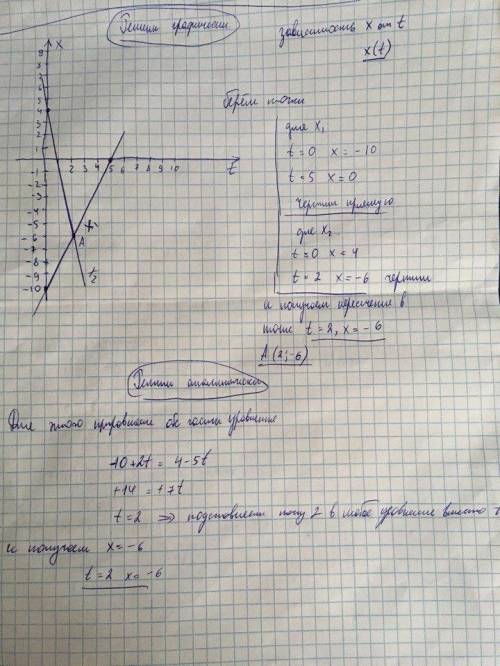 Решим графически
зависимость x от t
x(t)
Берём точки
для x₁
t=0 x=-10
t=5 x=0
чертим прямую
для x₂
t=0 x=4
t=2 x=-6 чертим
и получаем пересечение в
точке t=2, x=-6
A(2;-6)
x
9
8
7
6
5
4
3
2
1
2 3 4 5 6 7 8 9 10
t
-1
-2
-3
-4
-5
-6
-7
-8
-9
-10
A
x₁
Решим аналитически
Для этого приравниваем обе части уравнения
-10+2t=4-5t
+14=+7t
t=2 => подставляем нашу 2 в любое уравнение вместо t
и получаем x=-6
t=2 x=-6